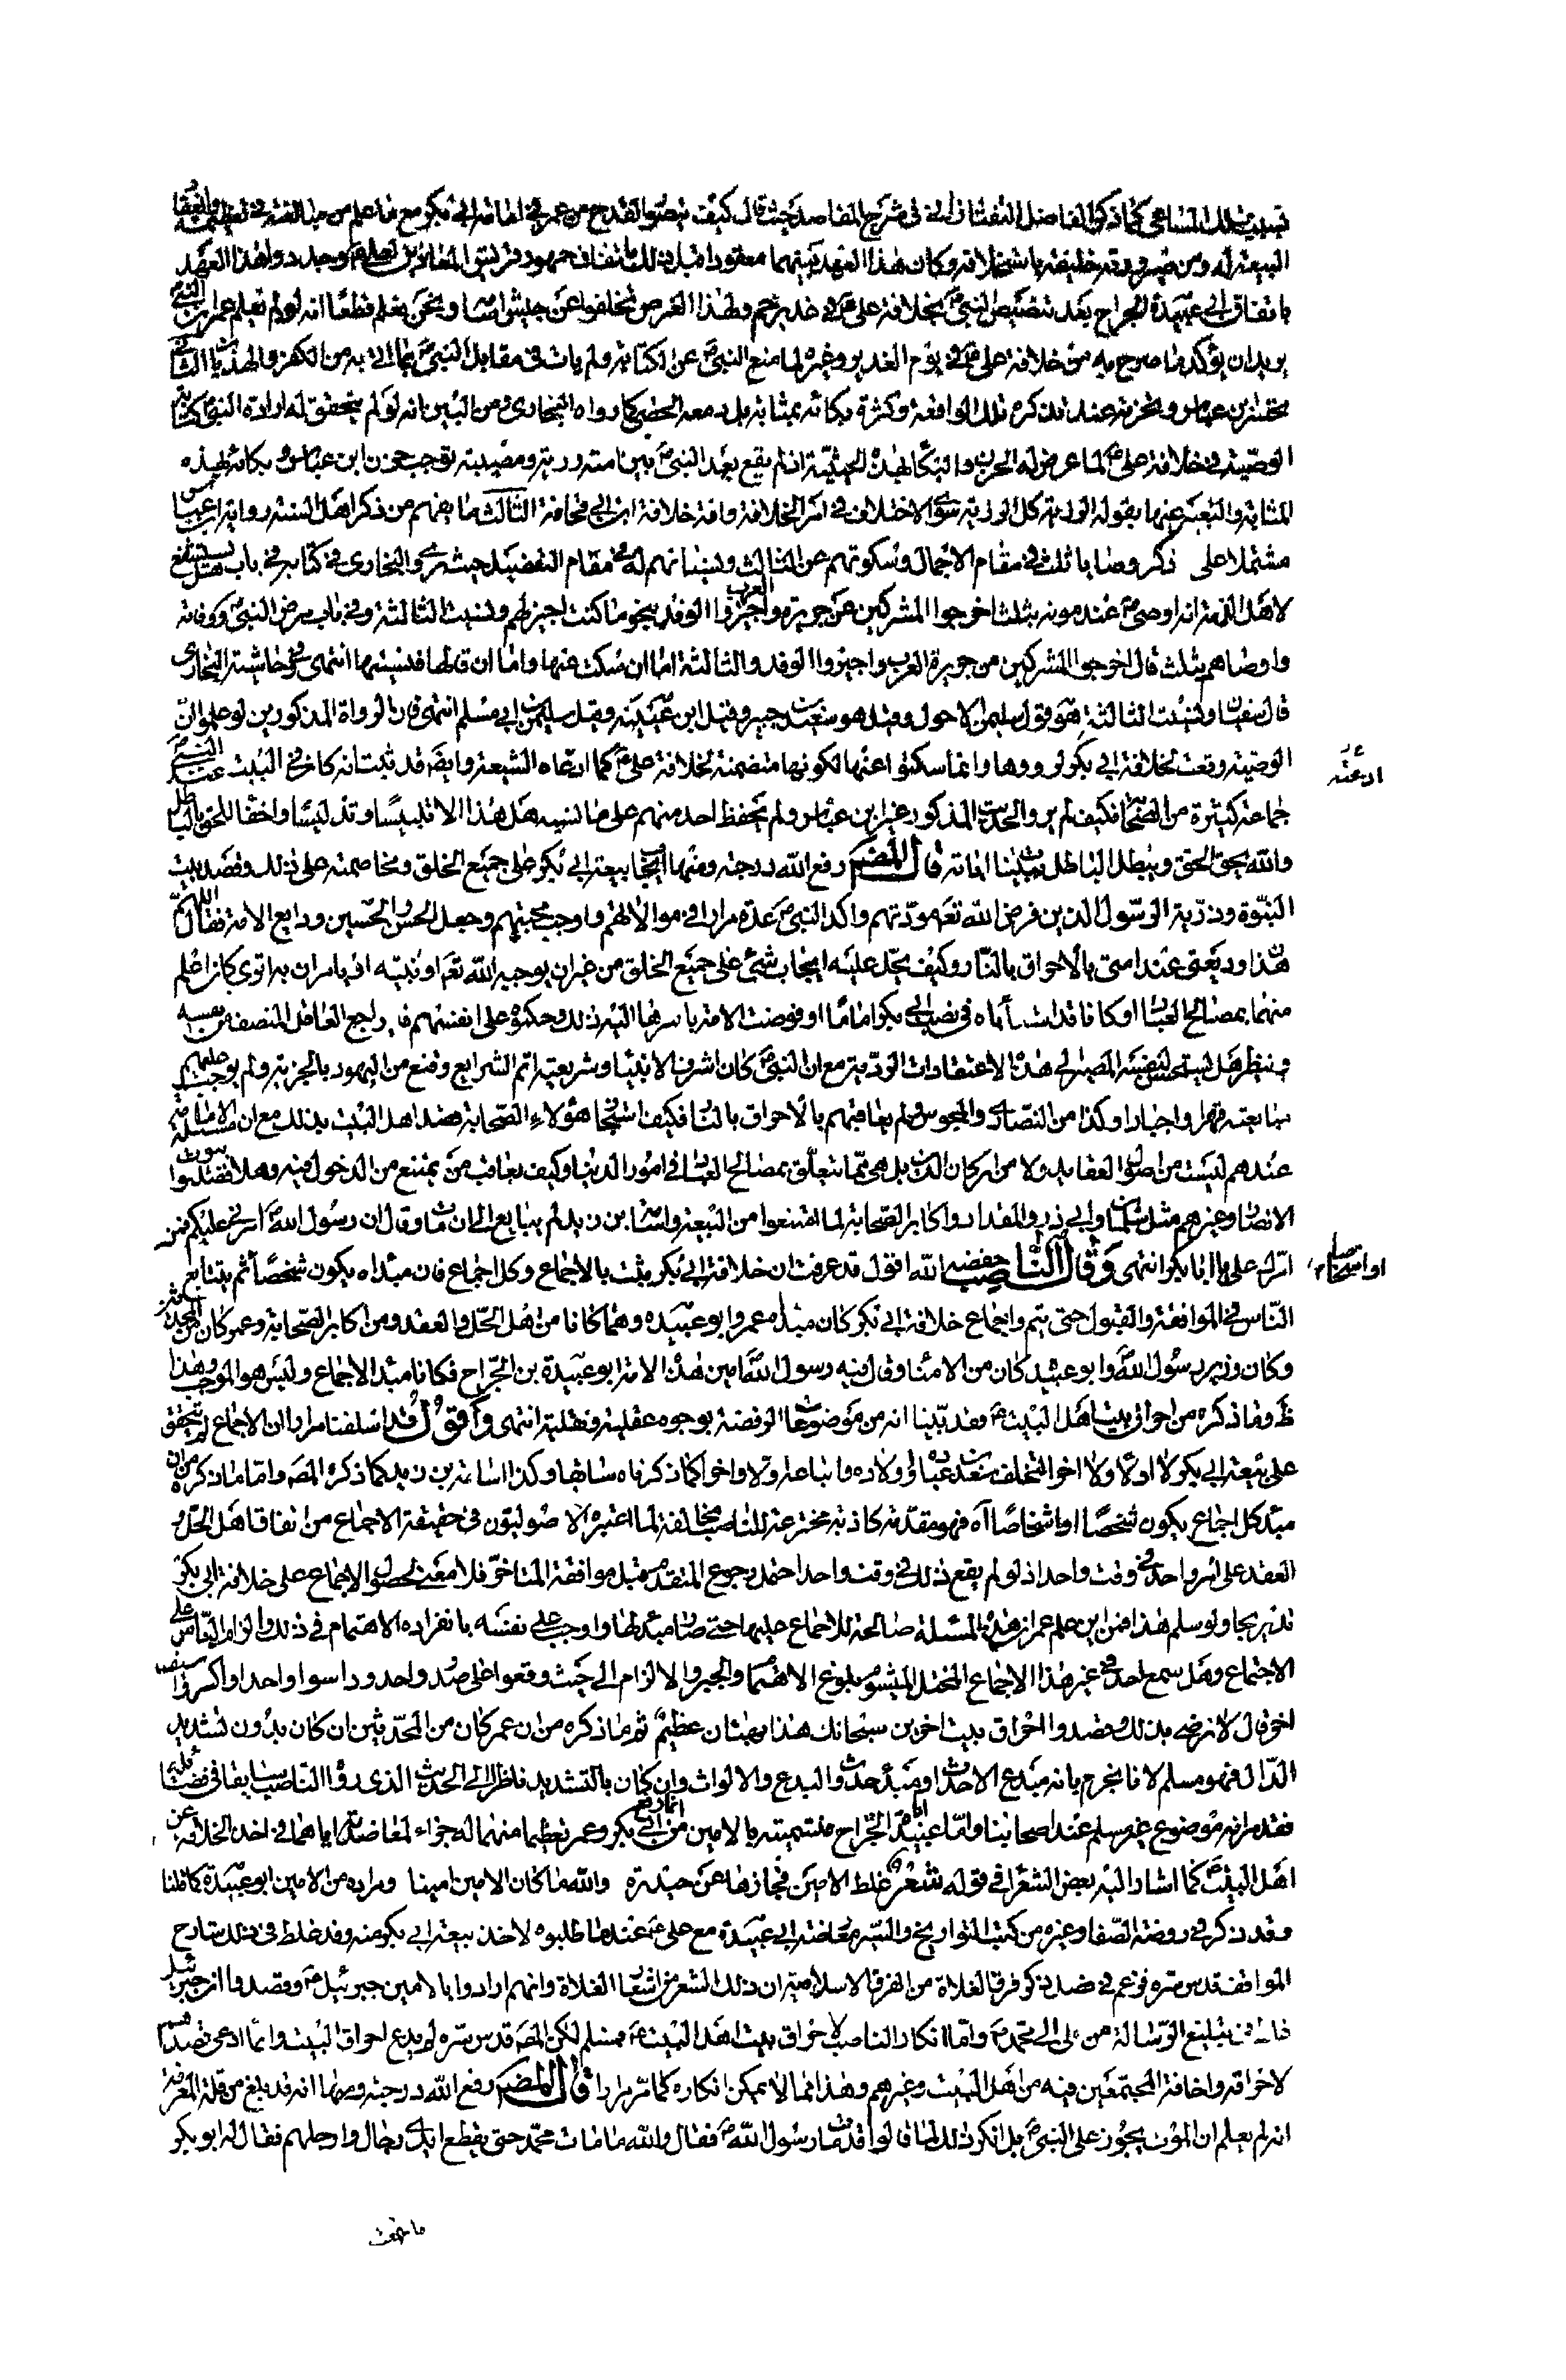 تسبيب تلك المساعي كما ذكره الفاضل التفتازاني في شرح المقاصد حيث قال كيف يتصور القدح من عمر في امامة ابي بكر مع ما علم من مبالغته في تعظيمه وانعقاد
البيعة له ومن صيرورته خليفة باستخلافه وكان هذا العهد بينهما معقودا قبل ذلك باتفاق جمهور قريش وجدد و لهذا العهد
باتفاق ابي عبيدة الجراح بعد تنصيص النبي ص بخلافة علي ع في غدير خم ولهذا الغرض تخلفوا عن جيش اسامة ونحن نعلم قطعا انه لو لم يعلم عمر ان النبي ص
يريد ان يؤكد ما صرح به من خلافة علي ع في يوم الغدير وغيره لما منع النبي ص عن الكتابة ولم يات في مقابل النبي ص بما اتى به من الكفر والهذيان
ابن عباس وتحزنه عند تذكره تلك الواقعة وكثرة بكائه بمثابة بل دمعه الحصى كما رواه البخاري ومن البين انه لو لم يتحقق له ارادة النبي ص كتابة
الوصية في خلافة علي ع لما عرض له الحزن والبكاء لهذه الحيثية اذ لم يقع بعد النبي ص بين امته رزية ومصيبة توجب حزن ابن عباس وبكائه بهذه
المثابة والتعبير عنها بقوله الرزية كل الرزية سوى الاختلاف في امر الخلافة وافة خلافة ابن ابي قحافة الثالث ما يفهم من ذكر اهل السنة رواية ابن عباس
مشتملا على ذكر وصايا ثلث في مقام الاجمال وسكوتهم عن الثالث ونسيانهم له في مقام التفصيل حيث روى البخاري في كتابه في باب هل يستشفع
لاهل الذمة انه اوصى ص عند موته بثلث اخرجوا المشركين عن جزيرة العرب واجيزوا الوفد بنحو ما كنت اجيزهم ونسيت الثالثة وفي باب مرض النبي ص ووفاته
واوصاهم بثلث قال اخرجوا المشركين من جزيرة العرب واجيزوا الوفد والثالثة اما ان سكت عنها واما ان قالها فنسيتها انتهى وفي حاشية البخاري
قال سفيان ونسيت الثالثة هو قول سليمان الاحول وقيل هو سعيد بن جبير وقيل ابن عيينة وقيل سليمان بن ابي مسلم انتهى فان الرواة المذكورين لو علموا ان
الوصية وقعت لخلافة ابي بكر لرووها وانما سكتوا عنها لكونها متضمنة لخلافة علي ع كما ادعاه الشيعة وايضا قد ثبت انه كان في البيت عند النبي ص
جماعة كثيرة من الصحابة فكيف لم يرو الحديث المذكور غير ابن عباس ولم يحفظ احد منهم على ما نسيه هل هذا الا تلبيسا وتدليسا واخفاء للحق بالباطل
والله يحق الحق ويبطل الباطل قال المصنف رفع الله درجته ومنها ايجاب بيعة ابي بكر على جميع الخلق ومخاصمته على ذلك وقصد بيت
النبوة وذرية الرسول الذين فرض الله تعالى مودتهم واكد النبي ص عدة مرار في موالاتهم واوجب محبتهم وجعل الحسن والحسين ودايع الامة فقال اللهم
هذا وديعتي عند امتي بالاحراق بالنار وكيف يحل عليه ايجاب شيء على جميع الخلق من غير ان يوجبه الله تعالى او نبيه او يامران به اترى كان اعلم
منهما بمصالح العباد او كانا قد استناباه في نصب ابي بكر اماما او فوضت الامة باسرها اليه ذلك وحكموه على انفسهم فليراجع العاقل المنصف من نفسه
وينظر هل يستحسن لنفسه المصير الى هذه الاعتقادات الردية مع ان النبي ص كان اشرف الانبياء وشريعته اتم الشرايع وقنع من اليهود بالجزية ولم يوجب عليهم
متابعته قهرا واجبارا وكذا من النصارى والمجوس ولم يعاقبهم بالاحراق بالنار فكيف استجاز هؤلاء الصحابة قصد اهل البيت بذلك مع ان مسئلة الامامة
عندهم ليست من اصول العقايد ولا من اركان الدين بل هي مما يتعلق بمصالح العباد في امور الدنيا وكيف يعاقب من يمتنع من الدخول فيه وهلا قصدوا بيوت
الانصار وغيرهم مثل سلمان وابي ذر والمقداد واكابر الصحابة لما امتنعوا من البيعة واسامة بن زيد لم يبايع الى ان مات وقال ان رسول الله ص امرني عليكم فمن
امرك علي يا ابا بكر انتهى وقال الناصب خفضه الله اقول قد عرفت ان خلافة ابي بكر يثبت بالاجماع وكل اجماع فان مبداه يكون شخصا ثم يتتابع
الناس في الموافقة والقبول حتى يتم واجماع خلافة ابي بكر كان مبداه عمر وابو عبيده وهما كانا من اهل الحل والعقد ومن اكابر الصحابة وعمر كان من المحدثين
وكان وزير رسول الله ص وابو عبيد كان من الامناء وقال فيه رسول الله ص امين هذه الامة ابو عبيدة بن الجراح فكانا مبدء الاجماع وليس هو الموجب وهذا
ظ وما ذكره من احراق بيت اهل البيت ع فقد بينا انه من موضوعات الرفضة بوجوه عقلية ونقلية انتهى واقول قد اسلفنا مرارا ان الاجماع لم يتحقق
على بيعة ابي بكر لا اولا ولا اخرا لتخلف سعد بن عبادة واولاده واتباعه اولا واخرا كما ذكرناه سابقا وكذا اسامة بن زيد كما ذكره المص واما ما ذكره من ان
مبدء كل اجماع يكون شخصا او اشخاصا آه فهو مقدمة كاذبة مخترعة للناصب مخالفة لما اعتبره الاصوليون في حقيقة الاجماع من اتفاق اهل الحل و
العقد على امر واحد في وقت واحد اذ لو لم يقع ذلك في وقت واحد احتمل رجوع المتقدم قبل موافقة المتاخر فلا معنى لحصول الاجماع على خلافة ابي بكر
تدريجا ولو سلم هذا فمن اين علم عمر ان هذه المسئلة صالحة للاجماع عليها حتى صار مبدء لها واوجب على نفسه بانفراده الاهتمام في ذلك والزام الناس على
الاجتماع وهل سمع احد في غير هذا الاجماع المختل الميشوم بلوغ الاهتمام والجبر والالزام الى حيث وقعوا على صدر واحد وداسوا واحدا واكسروا سيف
اخر قال لا نرضى بذلك وقصدوا احراق بيت اخرين سبحانك هذا بهتان عظيم ثم ما ذكره من ان عمر كان من المحدثين ان كان بدون تشديد
الدال فهو مسلم لانا نجزم بانه مبدع الاحداث او مبدء حدث والبدع والالواث وان كان بالتشديد ناظرا الى الحديث الذي رواه الناصب سابقا في فضائله
فقد مر انه موضوع غير مسلم عند اصحابنا واما عبيدة الجراح فتسميته بالامين انما وقع من ابي بكر وعمر تعظيما منهما له جزاء لمعاضدته اياهما في اخذ الخلافة عن
اهل البيت ع كما اشار اليه بعض الشعراء في قوله شعر غلط الامين فجازها عن حيدرة والله ما كان الامين امينا ومراده من الامين ابو عبيدة كما قلنا
وقد ذكر في روضة الصفا وغيره من كتب التواريخ والسير معارضة ابي عبيدة مع علي ع عند ما طلبوه لاخذ بيعة ابي بكر منه وقد غلط في ذلك شارح
المواقف قدس سره فزعم في فصل ذكر فرق الغلاة من الفرق الاسلامية ان ذلك الشعر من اشعار الغلاة وانهم ارادوا بالامين جبرئيل ع وقصدوا ان جبرئيل
خان في تبليغ الرسالة من علي الى محمد ص واما انكار الناصب لاحراق بيت اهل البيت ع فمسلم لكن المص قدس سره لم يدع احراق البيت وانما ادعى قصدهم
لاحراقه واخافة المجتمعين فيه من اهل البيت وغيرهم وهذا مما لا يمكن انكاره كما مر مرارا قال المصنف رفع الله درجته ومنها انه قد بلغ من قلة المعرفة
انه لم يعلم ان الموت يجوز على النبي ص بل انكر ذلك لما قالوا قد مات رسول الله ص فقال والله ما مات محمد حتى يقطع ايدي رجال وارجلهم فقال له ابو بكر
او اشخاصا